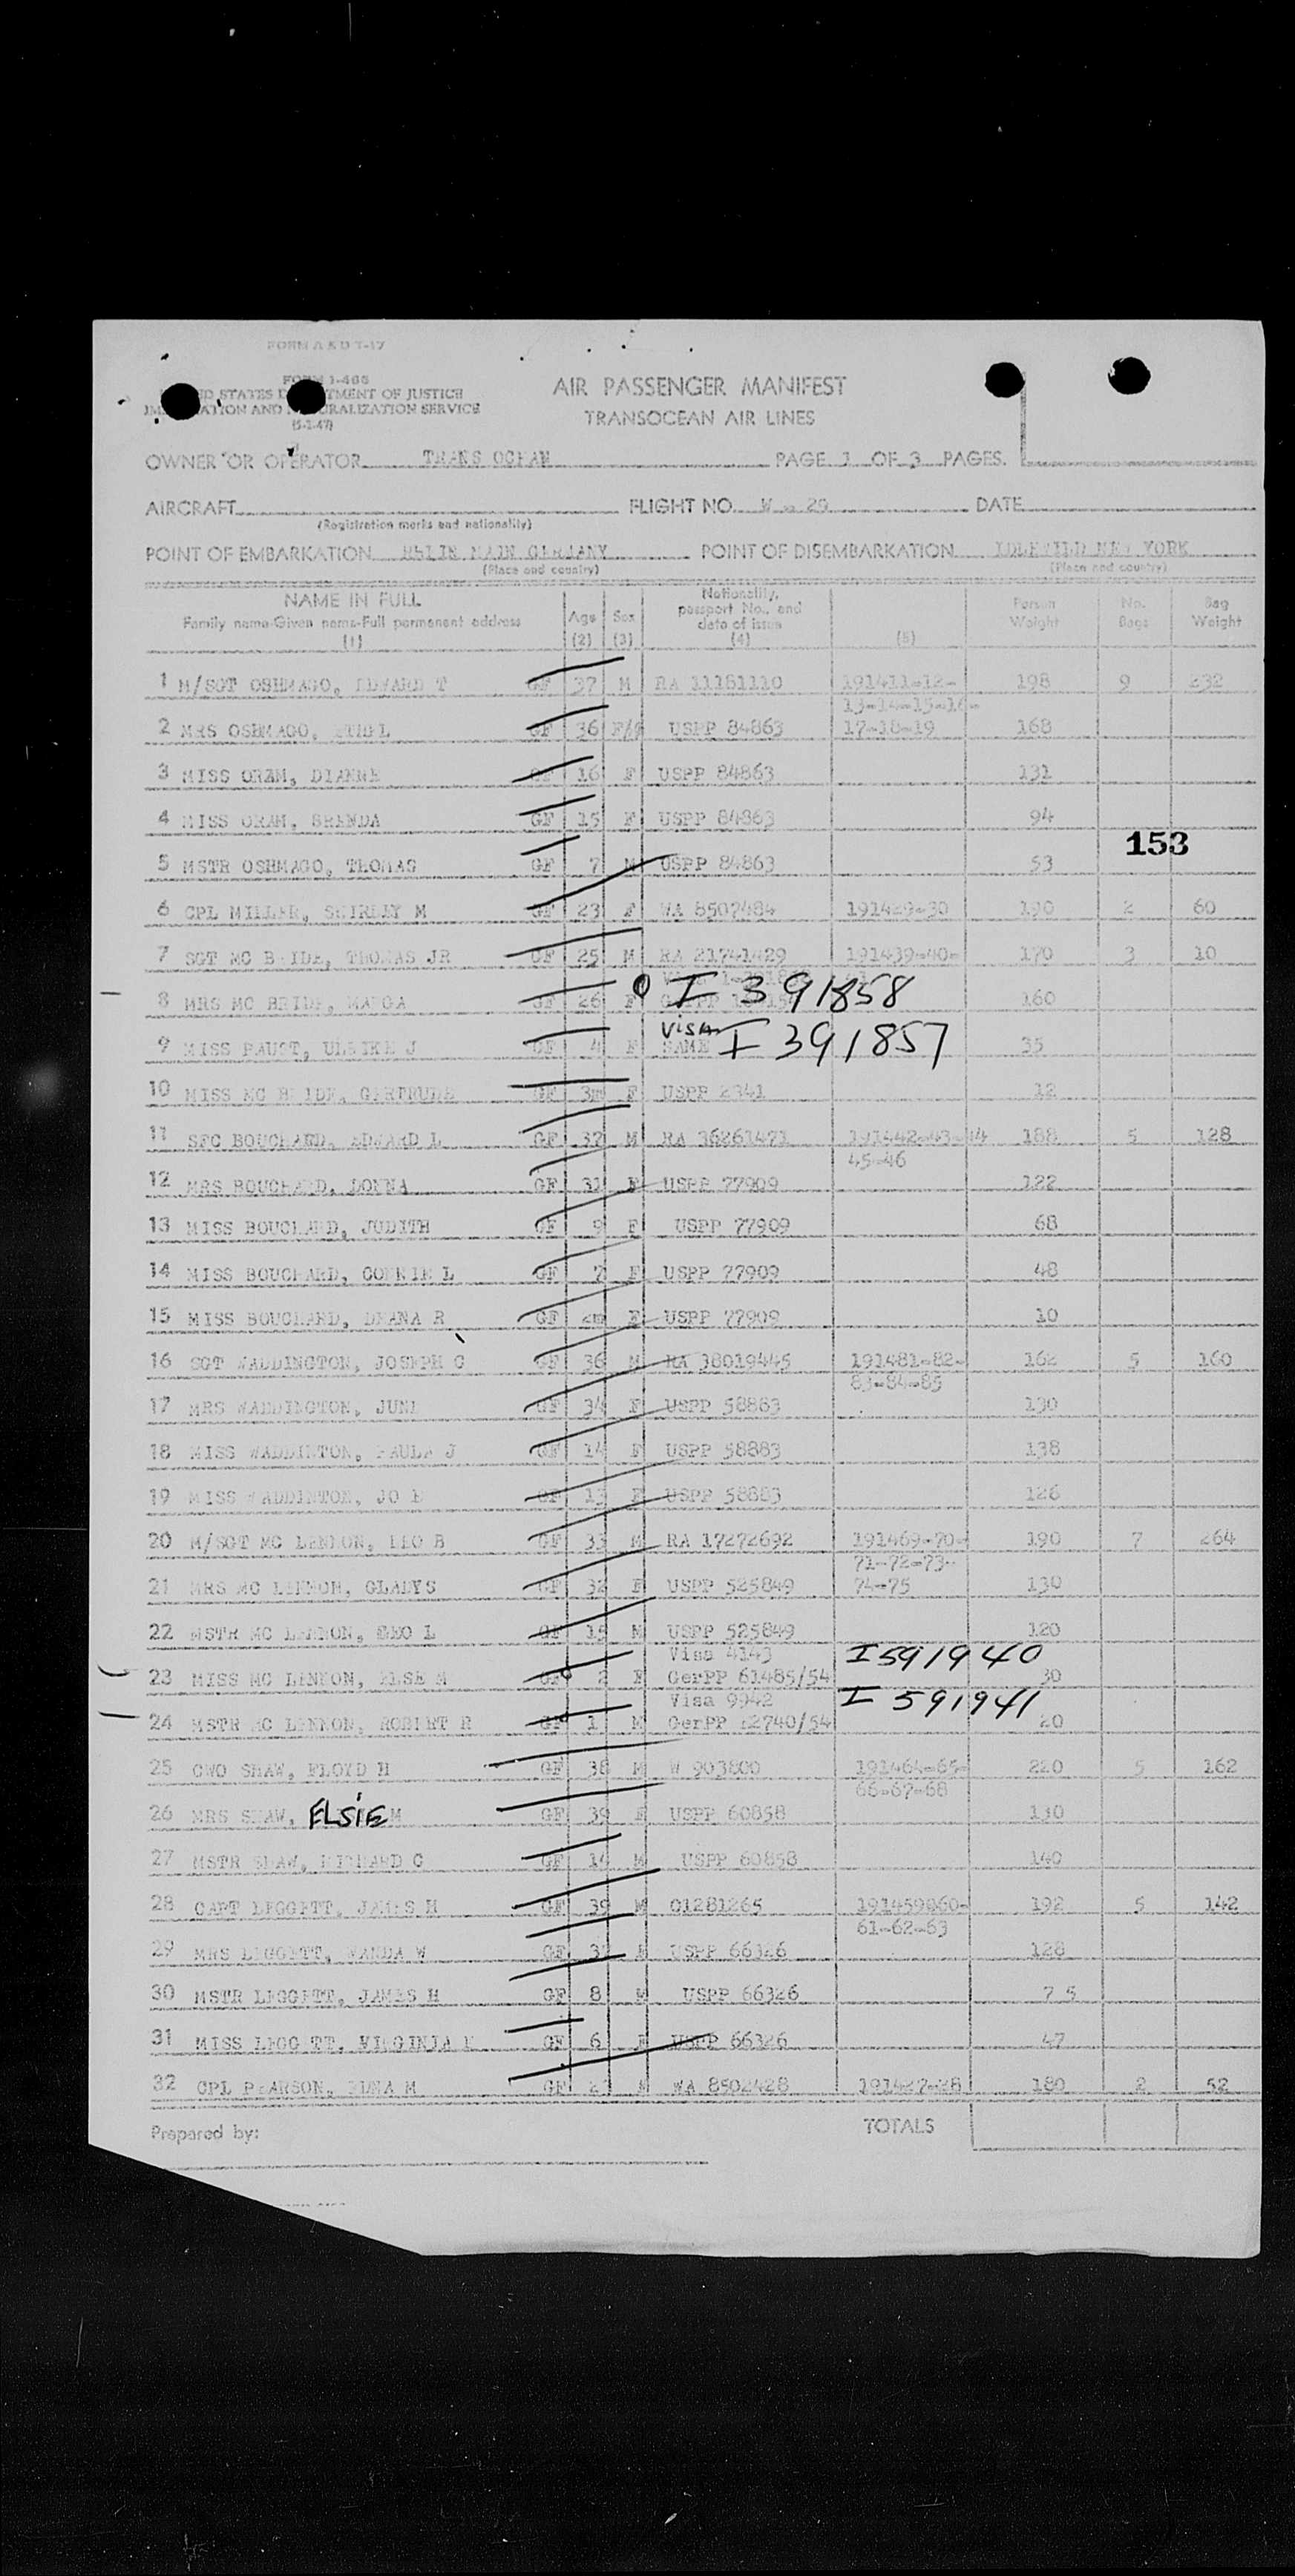 FORM A & D T-17
FORM I-466
STATES DEPARTMENT OF JUSTICE
IMMIGRATION AND NATURALIZATION SERVICE
(5-1-47)
AIR PASSENGER MANIFEST
TRANSOCEAN AIR LINES
OWNER OR OPERATOR TRANS OCEAN PAGE 1 OF 3 PAGES.
AIRCRAFT FLIGHT NO. W - 25 DATE
(Registration marks and nationality)
POINT OF EMBARKATION MAIN GERMANY POINT OF DISEMBARKATION IDLEWILD NEW YORK
(Place and country) (Place and country)
NAME IN FULL
Family name-Given name-Full permanent address
(1)
Age
(2)
Sex
(3)
Nationality,
passport No., and
date of issue
(4)
(5)
Person
Weight
No.
Bags
Bag
Weight
1 M/SGT OSHMAGO, EDWARD T GF 37 M RA 11151110 191411-12- 198 9 232
13-14-15-16-
2 MRS OSHMAGO, ETHEL GF 36 USPP 84863 17-18-19 168
3 MISS ORAM, DIANNE GF 16 F USPP 84863 131
4 MISS ORAM, BRENDA GF 15 F USPP 84863 94
153
5 MSTR OSHMAGO, THOMAS GF 7 M USPP 84863 53
6 CPL MILLER, SHIRLEY M GF 23 F WA 8507484 191429-30 190 2 60
7 SGT MC BRIDE, THOMAS JR GF 25 M RA 21741429 191439-40- 170 3 10
8 MRS MC BRIDE, GF 26 F I 391858 160
9 MISS FAUST, ULRIKE J GF 4 F VISA SAME I 391857 35
10 MISS MC BRIDE, GERTRUDE GF 3m F USPP 2341 12
11 SFC BOUCHARD, EDWARD L GF 37 M RA 36261471 191442-43-44 188 5 128
45-46
12 MRS BOUCHARD, DONNA GF 31 F USPP 77909 122
13 MISS BOUCHARD, JUDITH GF 9 F USPP 77909 68
14 MISS BOUCHARD, CONNIE L GF 7 F USPP 77909 48
15 MISS BOUCHARD, DEANA R GF 2m F USPP 77909 10
16 SGT WADDINGTON, JOSEPH C GF 36 M RA 38019445 191481-82- 162 5 160
83-84-85
17 MRS WADDINGTON, JUNE GF 34 F USPP 58883 130
18 MISS WADDINTON, PAULA J GF 14 F USPP 58883 138
19 MISS WADDINTON, JO E GF 13 F USPP 58883 126
20 M/SGT MC LENNON, LEO B GF 33 M RA 17272692 191469-70- 190 7 264
71-72-73-
21 MRS MC LENNON, GLADYS GF 32 F USPP 525849 74-75 130
22 MSTR MC LENNON, L GF 15 M USPP 525849 120
Visa 4143 I591940
23 MISS MC LENNON, ELSE M GF 2 F GerPP 61485/54 30
Visa 9942 I 591941
24 MSTR MC LENNON, ROBERT R GF 1 M GerPP 20
25 CWO SHAW, FLOYD H GF 38 M W 903800 191464-65- 220 5 162
66-67-68
26 MRS SHAW, ELSIE M GF 39 F USPP 60858 130
27 MSTR SHAW, RICHARD C GF 14 M USPP 60858 140
28 CAPT LEGGETT, JAMES H GF 39 M 01281265 191459-60- 192 5 142
61-62-63
29 MRS LEGGETT, WANDA W GF F USPP 66326 128
30 MSTR LEGGETT, JAMES H GF 8 M USPP 66326 75
31 MISS LEGGETT, VIRGINIA GF 6 F USPP 66326 47
32 CPL PEARSON, EDNA M GF F WA 8502428 191427-28 180 2 52
Prepared by: TOTALS